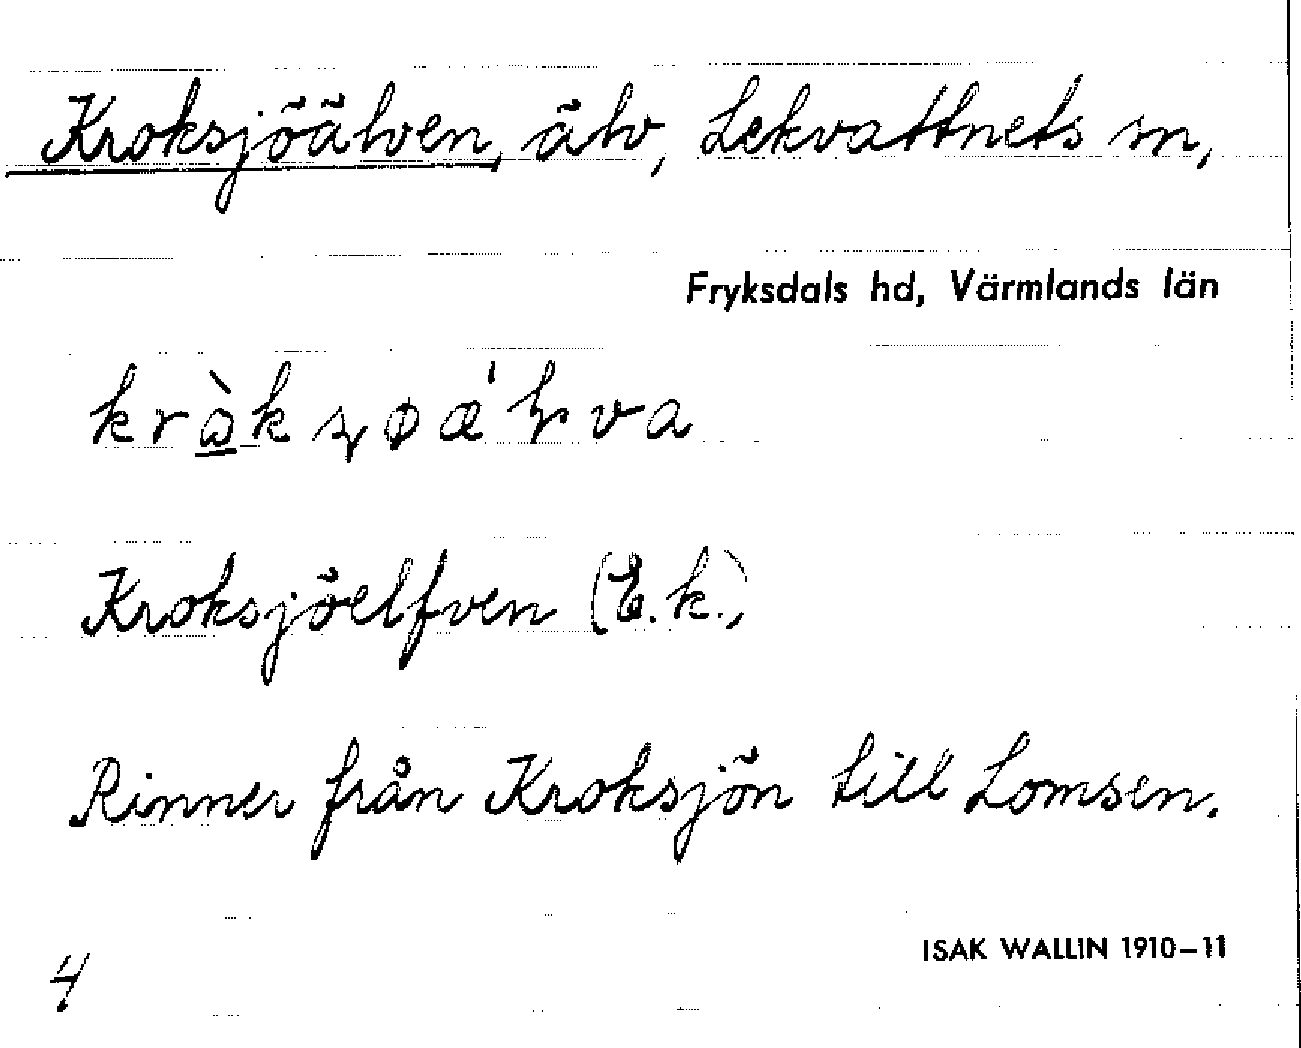 Kroksjöälven, älv, Lekvattnets sn,
Fryksdals hd, Värmlands län
Kroksjöelfven (E.k.)
Rinner från Kroksjön till Lomsen.
ISAK WALLIN 1910–11
4